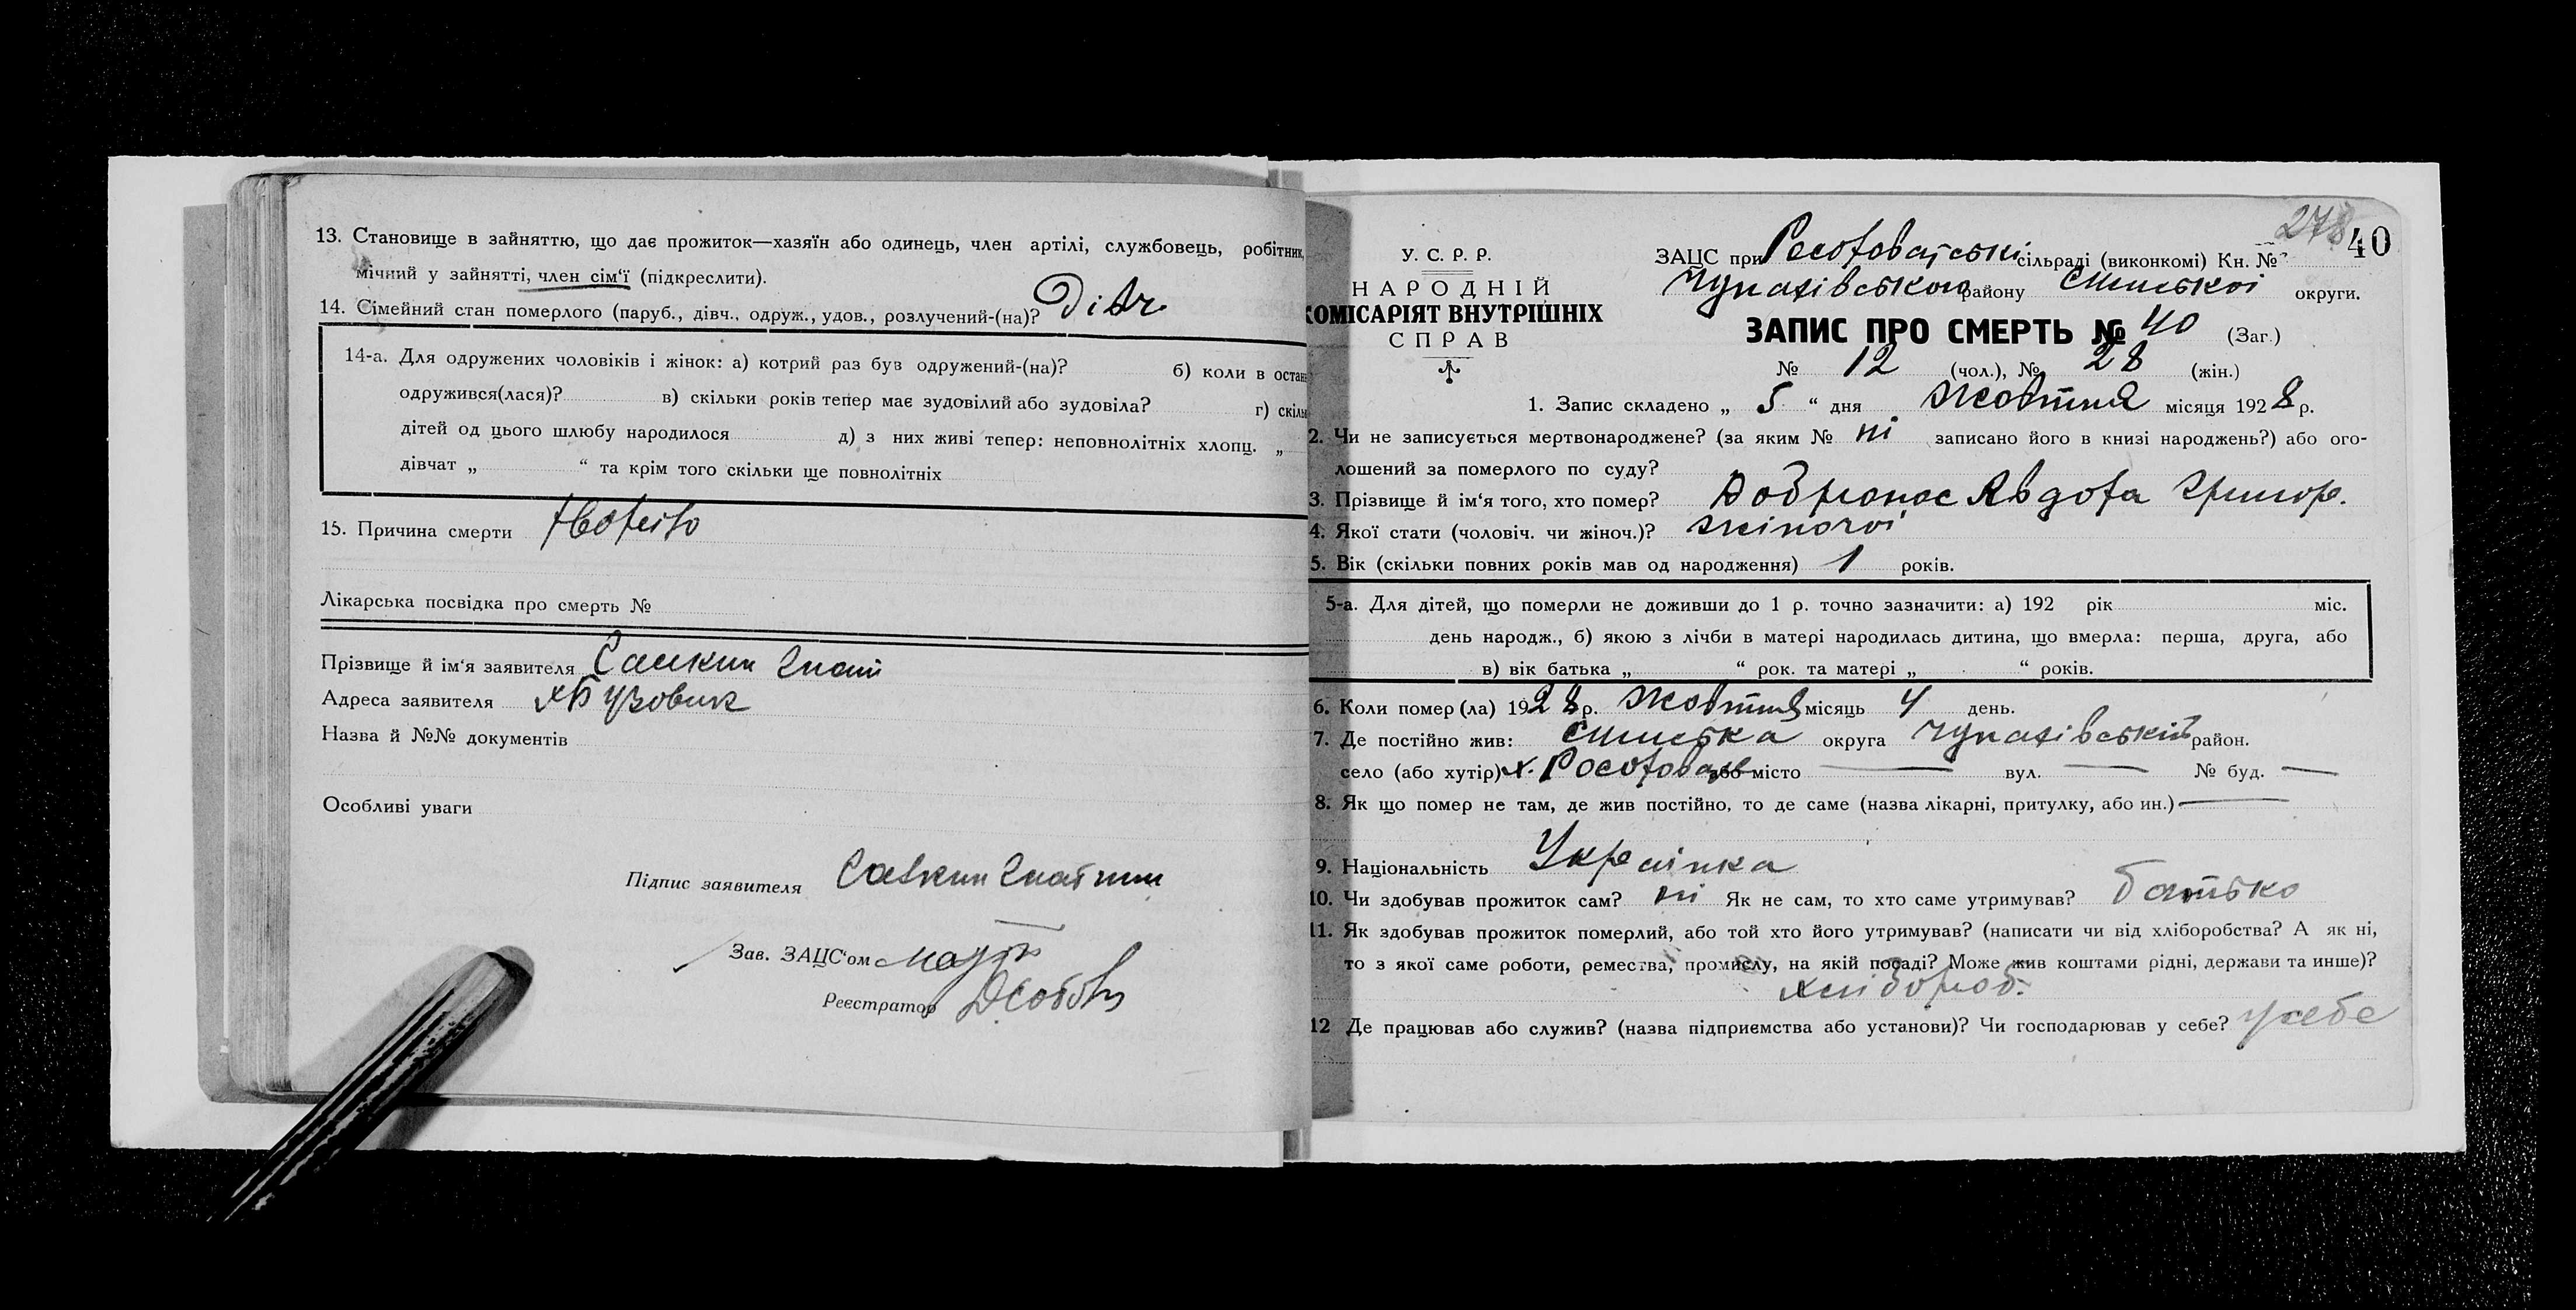 13. Становище в зайняттю, що дає прожиток—хазяїн або одинець, член артілі, службовець, робітник,
мічний у зайнятті, член сім'ї (підкреслити).
14. Сімейний стан померлого (паруб., дівч., одруж., удов., розлучений-(на)? Дівч
14-а. Для одружених чоловіків і жінок: а) котрий раз був одружений-(на)? б) коли в остан
одружився(лася)? в) скільки років тепер має зудовілий або зудовіла? г) скіль
дітей од цього шлюбу народилося д) з них живі тепер: неповнолітніх хлопц. „
дівчат „ “ та крім того скільки ще повнолітніх
15. Причина смерти
Лікарська посвідка про смерть №
Прізвище й ім'я заявителя Гнат
Адреса заявителя х Бузовик
Назва й №№ документів
Особливі уваги
Підпис заявителя
Зав. ЗАЦС'ом
Реєстратор
278 40
У. С. Р. Р.
НАРОДНІЙ
КОМІСАРІЯТ ВНУТРІШНІХ
СПРАВ
ЗАЦС при сільраді (виконкомі) Кн. №
Чупахівського району Сумської округи.
ЗАПИС ПРО СМЕРТЬ № 40 (Заг.)
№ 12 (чол.), № 28 (жін.)
1. Запис складено „ 5 “ дня Жовтня місяця 1928 р.
2. Чи не записується мертвонароджене? (за яким № ні записано його в книзі народжень?) або ого-
лошений за померлого по суду?
3. Прізвище й ім'я того, хто помер? Добронос Явдоха Григор.
4. Якої стати (чоловіч. чи жіноч.)? жіночої
5. Вік (скільки повних років мав од народження) 1 років.
5-а. Для дітей, що померли не доживши до 1 р. точно зазначити: а) 192 рік міс.
день народж., б) якою з лічби в матері народилась дитина, що вмерла: перша, друга, або
в) вік батька „ “ рок. та матері „ “ років.
6. Коли помер (ла) 1928 р. Жовтня місяць 4 день.
7. Де постійно жив: Сумська округа Чупахівський район.
село (або хутір) х. або місто — вул. — № буд. —
8. Як що помер не там, де жив постійно, то де саме (назва лікарні, притулку, або ин.) —
9. Національність Українка
10. Чи здобував прожиток сам? ні Як не сам, то хто саме утримував? батько
11. Як здобував прожиток померлий, або той хто його утримував? (написати чи від хліборобства? А як ні,
то з якої саме роботи, ремества, промислу, на якій посаді? Може жив коштами рідні, держави та инше)?
хлібороб.
12 Де працював або служив? (назва підприємства або установи)? Чи господарював у себе? у себе